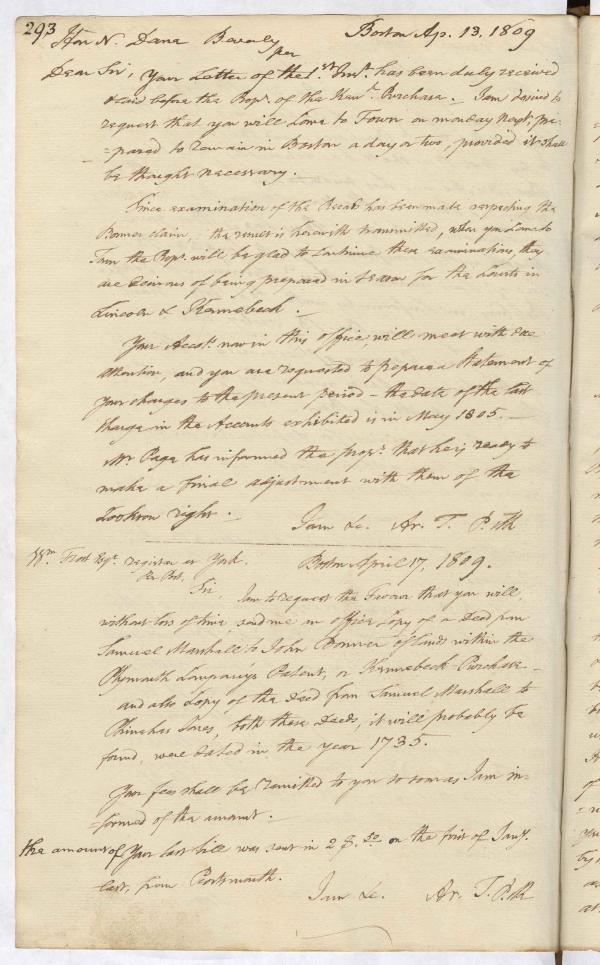 293
Hon N. Dana Beverly Boston Ap. 13. 1809
per
Dear Sir, Your Letter of the 1.st Inst. has been duly received
& laid before the Propr. of the Kenne. Purchase. I am desired to
request that you will Come to Town on monday next, pre-
=pared to remain in Boston a day or two, provided it shall
be thought necessary.
Since examination of the Records has been made respecting the
Bonner claim, the result is herewith transmitted, when you Come to
Town the Propr. will be glad to Continue these examinations, they
are desirous of being prepared in season for the Courts in
Lincoln & Kennebeck.
Your Accots. now in this office, will meet with due
attention, and you are requested to prepare a Statement of
your charges to the present period - the date of the last
Charge in the Accounts exhibited is in May 1805.
Mr. Page has informed the propr. that he is ready to
make a final adjustment with them of the
right.
I am &c. Ar. T. P. Clk
Wm. Frost Esqr. register at York. Boston April 17, 1809.
Per Post.
Sir, I am to request the Favour that you will,
without loss of time, send me an office Copy of a Deed from
Samuel Marshall to John Bonner of Lands within the
Plymouth Company's Patent, or Kennebeck Purchase -
and also Copy of the Deed from Samuel Marshall to
Phinehas Jones, both these Deeds, it will probably be
found, were dated in the year 1735.
Your fees shall be remitted to you so soon as I am in-
=formed of the amount.
the amount of Your last bill was sent in 2 50 on the first of Jany.
last, from Portsmouth.
I am &c. Ar. T. P. Clk